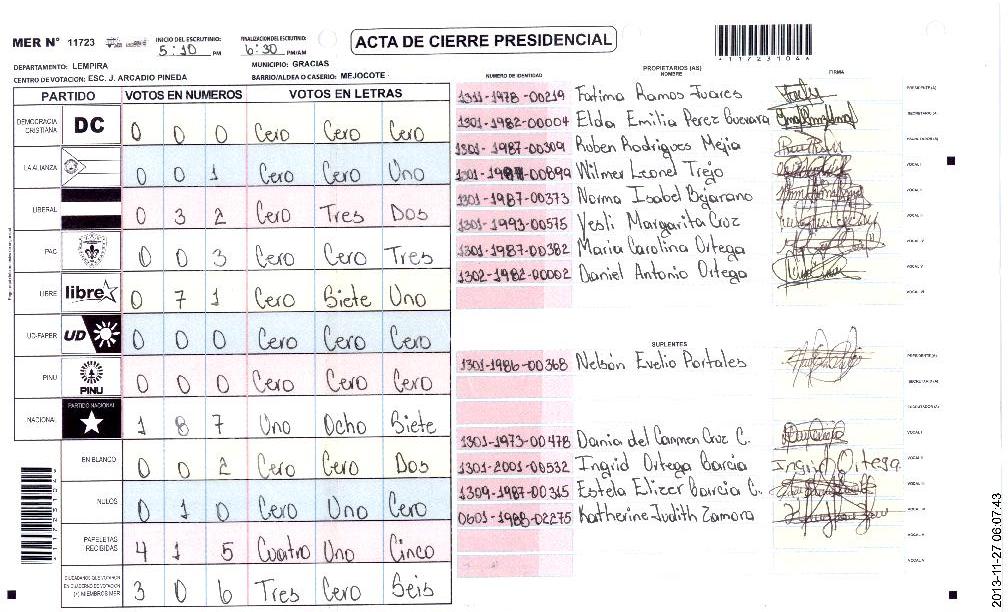 ACTA DE CIERRE PRESIDENCIAL
MER N° 11723
INICIO DEL ESCRUTINIO: 5:10 PM
FINALIZACION DEL ESCRUTINIO: 6:30 PM/AM
DEPARTAMENTO: LEMPIRA
MUNICIPIO: GRACIAS
CENTRO DE VOTACION: ESC. J. ARCADIO PINEDA
BARRIO/ALDEA O CASERIO: MEJOCOTE
11723104
PARTIDO VOTOS EN NUMEROS VOTOS EN LETRAS
DEMOCRACIA CRISTIANA DC 0 0 0 Cero Cero Cero
LA ALIANZA 0 0 1 Cero Cero Uno
LIBERAL 0 3 2 Cero Tres Dos
PAC 0 0 3 Cero Cero Tres
LIBRE libre 0 7 1 Cero Siete Uno
UD-FAPER UD 0 0 0 Cero Cero Cero
PINU PINU 0 0 0 Cero Cero Cero
NACIONAL PARTIDO NACIONAL 1 8 7 Uno Ocho Siete
EN BLANCO 0 0 2 Cero Cero Dos
NULOS 0 1 0 Cero Uno Cero
PAPELETAS RECIBIDAS 4 1 5 Cuatro Uno Cinco
CIUDADANOS QUE VOTARON EN CUADERNO DE VOTACION (+) MIEMBROS MER 3 0 6 Tres Cero Seis
NUMERO DE IDENTIDAD PROPIETARIOS (AS) NOMBRE FIRMA
1311-1978-00219 Fatima Ramos Juares PRESIDENTE(A)
1301-1982-00004 Elda Emilia Perez Buenara SECRETARIO(A)
1301-1987-00309 Ruben Rodrigues Mejia ESCRUTADOR(A)
Wilmer Leonel Trejo VOCAL I
1301-1987-00373 Norma Isabel Bejarano VOCAL II
1301-1993-00575 Yesli Margarita Cruz VOCAL III
1301-1987-00382 Maria Carolina Ortega VOCAL IV
1302-1982-00002 Daniel Antonio Ortega VOCAL V
VOCAL VI
SUPLENTES
1301-1986-00368 Nelson Evelio Portales PRESIDENTE(A)
SECRETARIO(A)
ESCRUTADOR(A)
1301-1973-00478 Dania del Carmen Cruz C. VOCAL I
1301-2001-00532 Ingrid Ortega Garcia Ingrid Ortega VOCAL II
1309-1987-00315 Estela Elizer Garcia C. VOCAL III
0601-1988-02275 Katherine Judith Zamora VOCAL IV
VOCAL V
VOCAL VI
2013-11-27 06:07:43